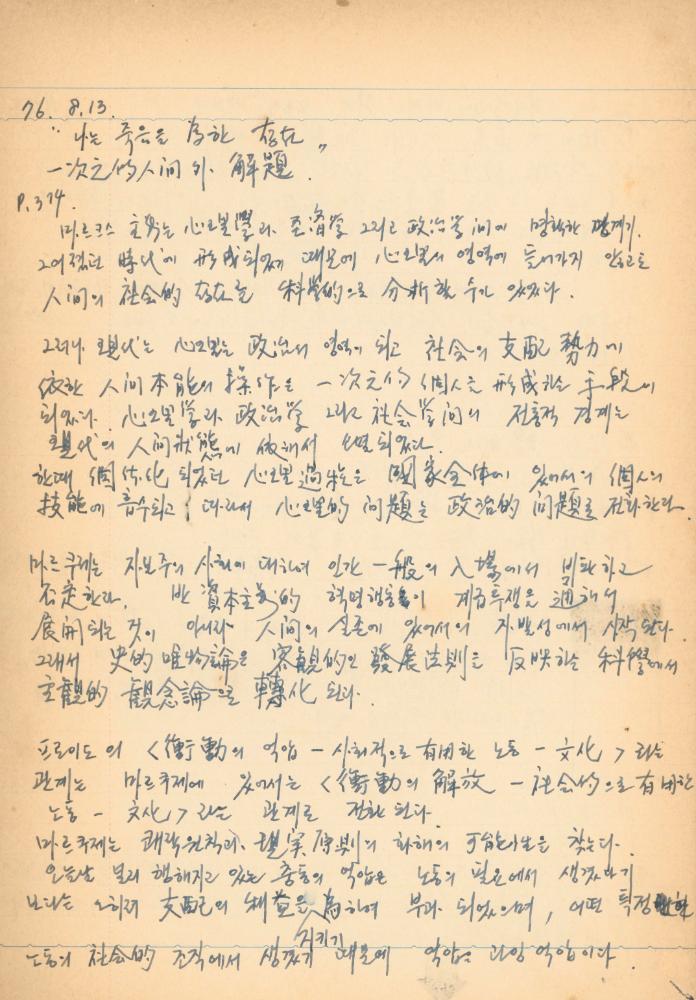 76. 8.13.
"나는 죽음을 為한 存在"
一次元的人间 外. 解題.
P.374.
마르크스 主義는 心理學과 経濟学 그리고 政治学间에 명확한 경계가
그어졌던 時代에 形成되었기 때문에 心理의 영역에 들어가지 않고도
人间의 社会的 存在를 科學的으로 分析할 수가 있었다.
그러나 現代는 心理는 政治의 영역이 되고 社会의 支配 勢力에
依한 人间本能의 操作은 一次元的 個人을 形成하는 手段이
되었다. 心理学과 政治学 그리고 社会学间의 전통적 경계는
現代의 人间狀態에 依해서 되었다.
한때 個体化 되었던 心理過程은 國家全体에 있어서의 個人의
技能에 흡수되고 따라서 心理的 问題는 政治的 问題로 전화한다.
마르쿠제는 자본주의 사회에 대하여 인간 一般의 入場에서 비판하고
否定한다. 반 資本主義的 혁명행동이 계급투쟁을 通해서
展開되는 것이 아니라 人间의 실존에 있어서의 자발성에서 시작된다.
그래서 史的 唯物論은 客観的인 發展法則을 反映하는 科學에서
主観的 観念論으로 轉化 된다.
프로이드의 <衝動의 억압 - 사회적으로 有用한 노동 - 文化> 라는
관계는 마르쿠제에 있어서는 <衝動의 解放 - 社会的으로 有用한
노동 - 文化> 라는 관계로 전환된다.
마르쿠제는 쾌락원칙과 現実原則의 화해의 可能性을 찾는다.
오늘날 널리 행해지고 있는 충동의 억압은 노동의 필요에서 생겼다기
보다는 오히려 支配의 利益을 為하여 부과 되었으며, 어떤 특정한
노동의 社会的 조직에서 생겼기 때문에 억압은 과잉억압이다.
지키기